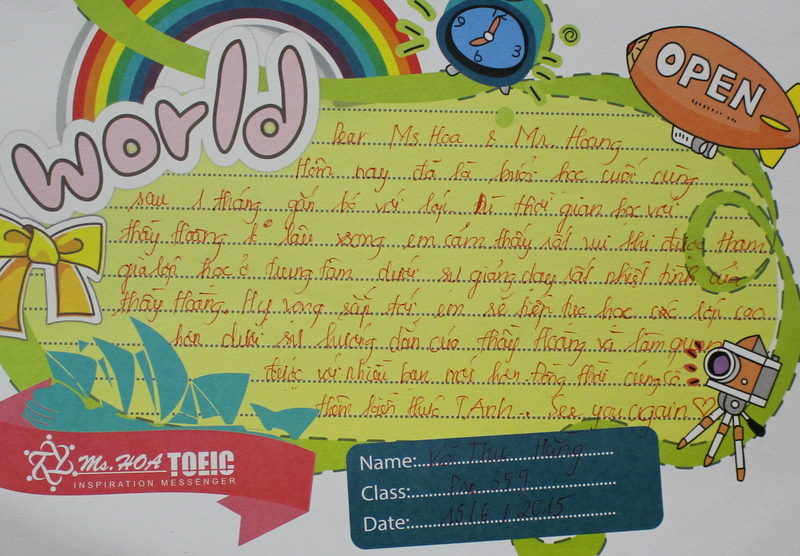 world
OPEN
Dear Ms Hoa & Mr. Hoang
Hôm nay đã là buổi học cuối cùng
sau 1 tháng gắn bó với lớp. Dù thời gian học với
thầy Hoàng k° lâu xong em cảm thấy rất vui khi được tham
gia lớp học ở trung tâm dưới sự giảng dạy rất nhiệt tình của
thầy Hoàng. Hy vọng sắp tới em sẽ tiếp tục học các lớp cao
hơn dưới sự hướng dẫn của thầy Hoàng và làm quen
được với nhiều bạn mới hơn. Đồng thời củng cố
thêm kiến thức T.Anh.. See you again ♡
Ms. HOA TOEIC
INSPIRATION MESSENGER
Name: Võ Thu Hằng
Class: Pre 359
Date: 2015